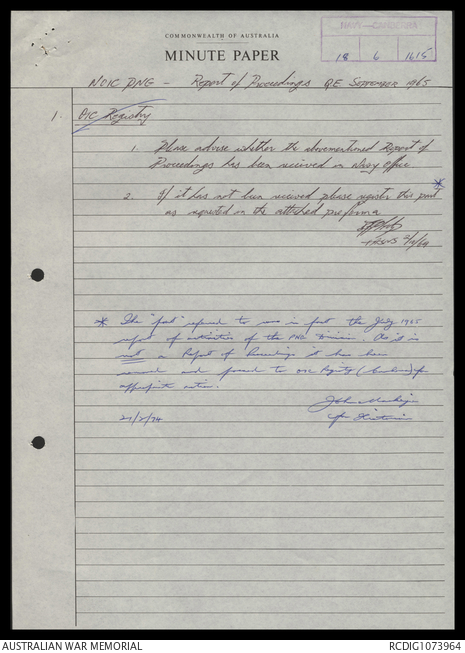 COMMONWEALTH OF AUSTRALIA
MINUTE PAPER
NAVY—CANBERRA
18 6 1615
NOIC PNG - Report of Proceedings Q.E. September 1965
1. OIC Registry
1. Please advise whether the abovementioned Report of
Proceedings has been received in Navy Office
2. If it has not been received please register this part *
as requested on the attached proforma
* The "part" referred to was in fact the July 1965
report of activities of the PNG Division. As it is
not a Report of Proceedings it has been
removed and passed to OIC Registry for
appropriate action.
21/2/74
AUSTRALIAN WAR MEMORIAL
RCDIG1073964